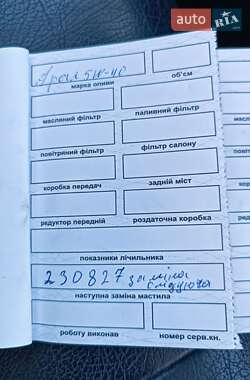 auto RIA
Арал 5W-40
марка оливи
об'єм
масляний фільтр
паливний фільтр
повітряний фільтр
фільтр салону
коробка передач
задній міст
редуктор передній
роздаточна коробка
показники лічильника
230827 заміна
слідуюча
наступна заміна мастила
роботу виконав
номер серв.кн.